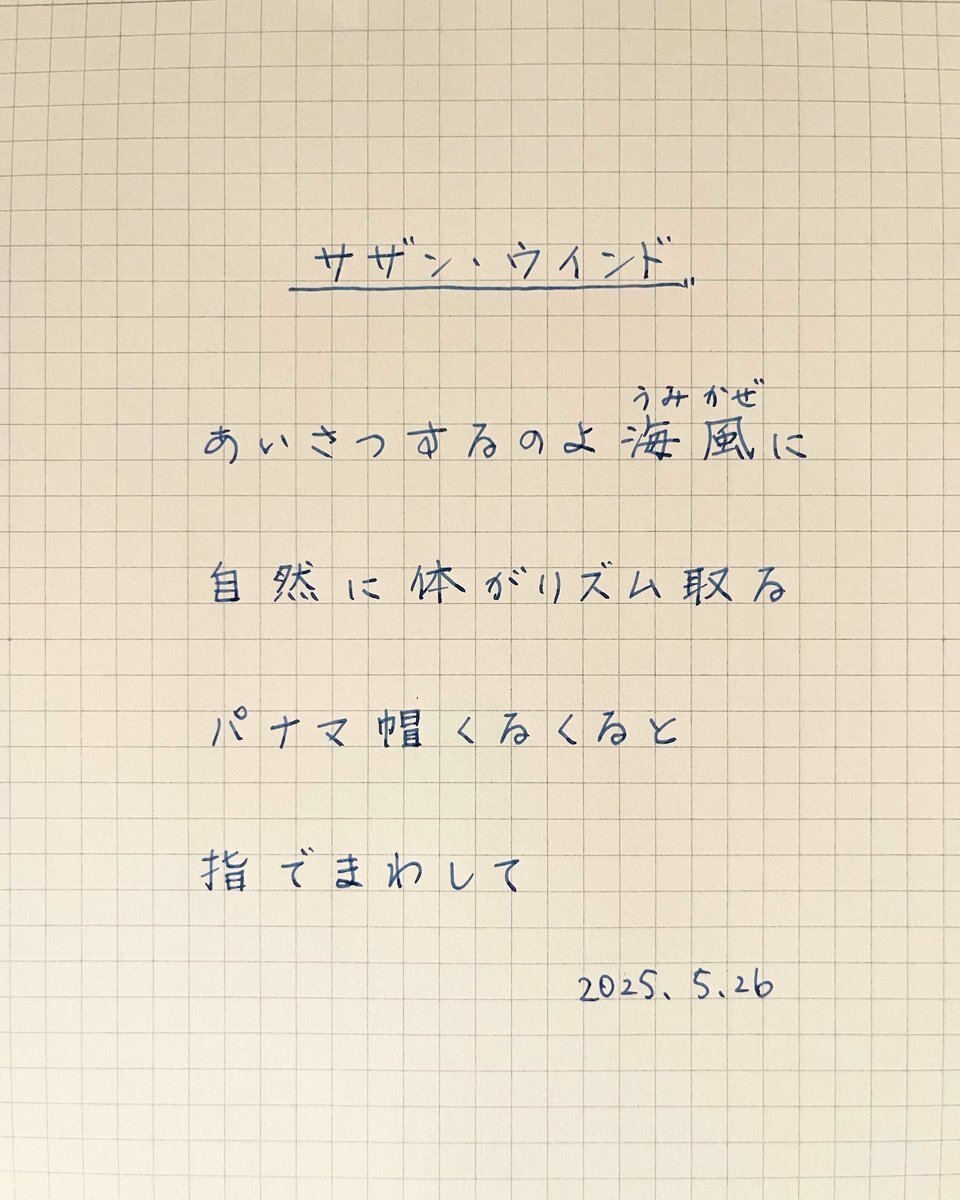 サザン・ウインド
うみかぜ
あいさつするのよ海風に
自然に体がリズム取る
パナマ帽くるくると
指でまわして
2025.5.26